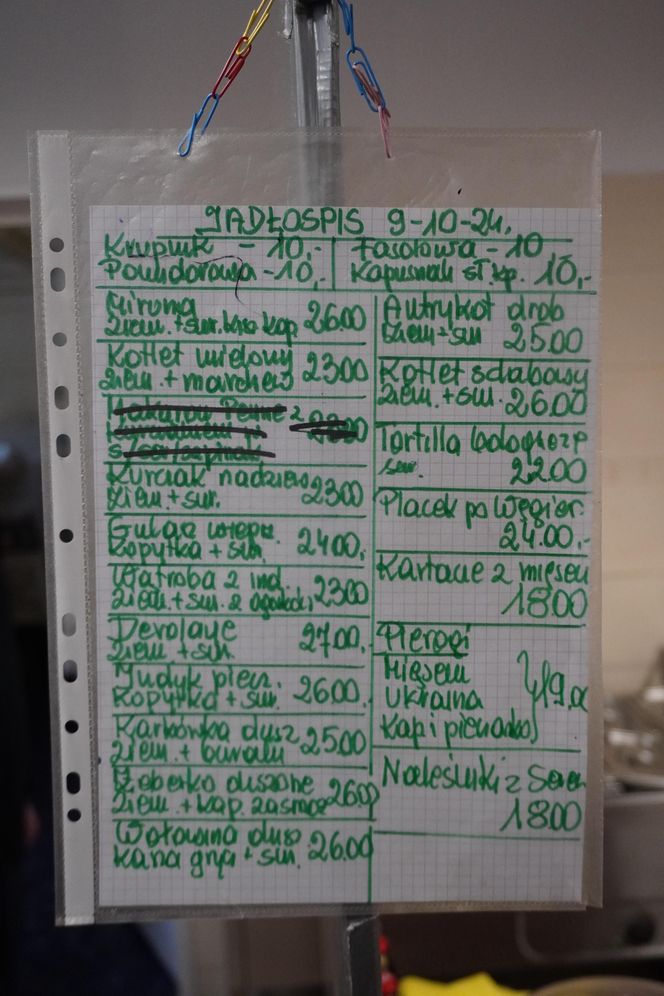 JADŁOSPIS 9-10-24.
Krupnik - 10,-
Pomidorowa - 10,-
Fasolowa - 10
Kapuśniak sł. kp. 10,-
Miruna
ziem. + sur. kap 26.00
Kotlet mielony
ziem. + marchew 23.00
Kurczak nadziew
ziem + sur. 23.00
Gulasz wieprz.
Kopytka + sur. 24.00,-
Wątroba z ind.
ziem. + sur. z ogórków 23.00
Devolaye
ziem + sur. 27.00,
Indyk piecz.
Kopytka + sur. 26.00.
Karkówka dusz
ziem. + buraki 25.00
Żeberko duszone
ziem. + kap. zasmaż 26.00
Wołowina dusz
kasza gryn + sur. 26.00
Antrykot drob
ziem + sur 25.00
Kotlet schabowy
ziem. + sur. 26.00
Tortilla
sur. 22.00
Placek po Węgier.
24.00.-
Kartacze z mięsem
18.00
Pierogi
Mięsem
Ukraina 19.00
Kap i pieczarkoj
Naleśniki z Serem
18.00